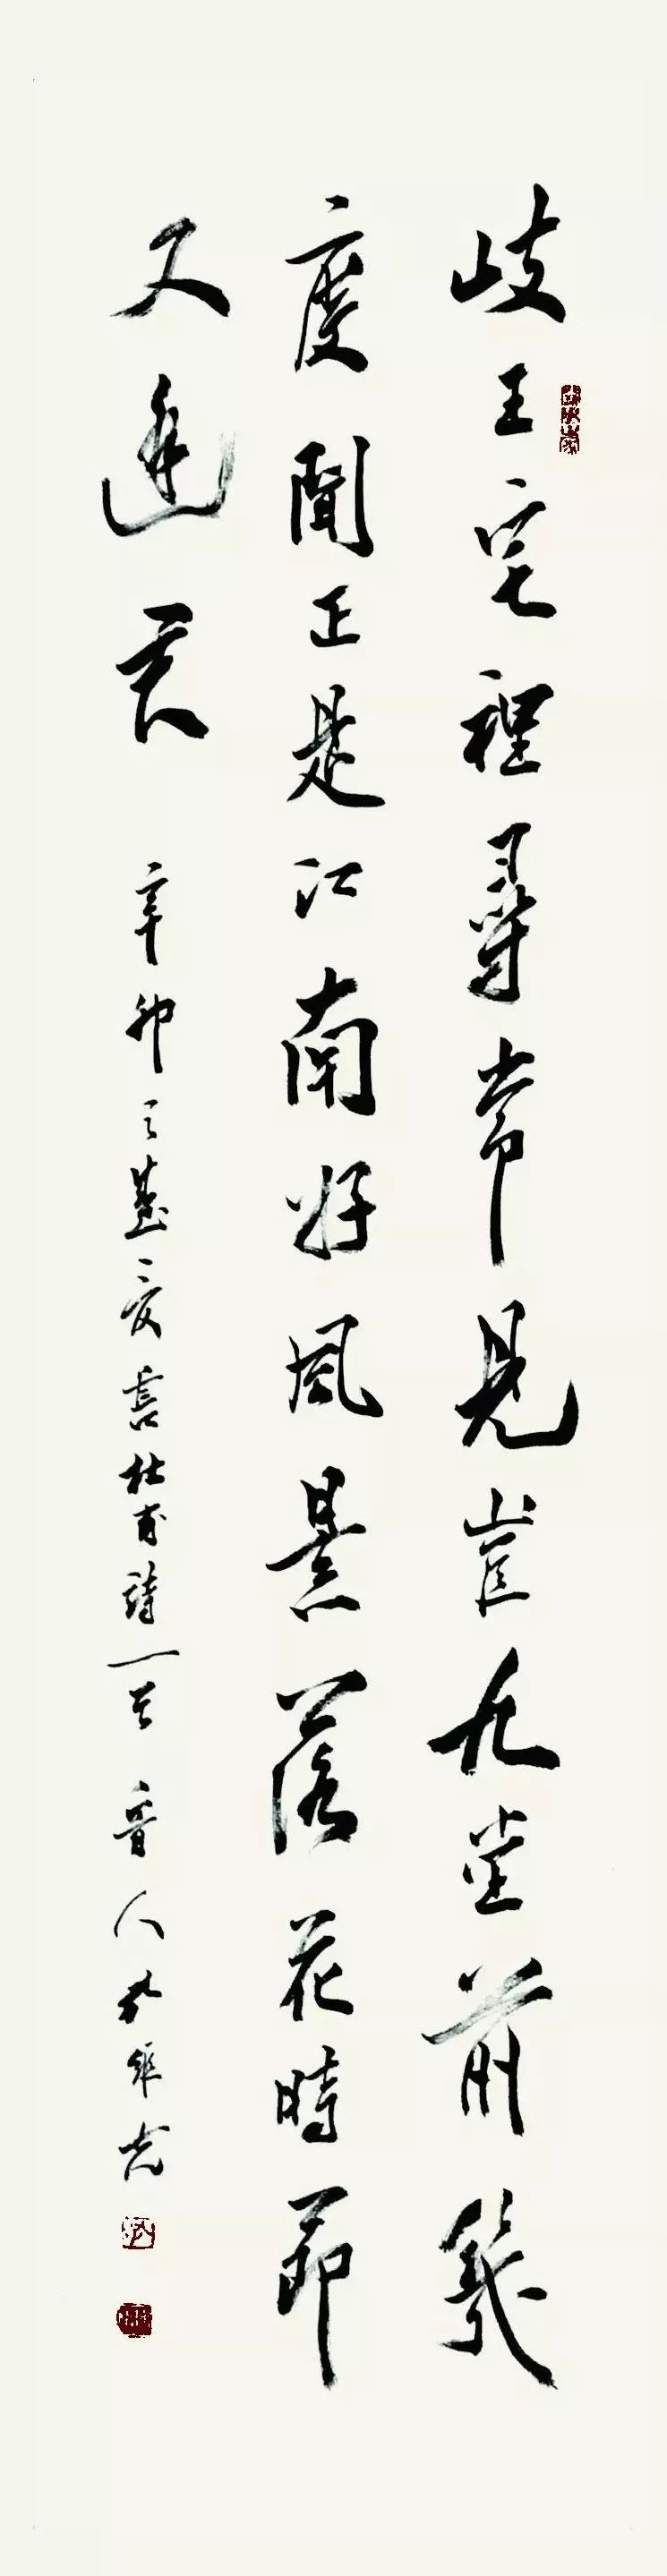 岐王宅裡尋常見崔九堂前幾
度聞正是江南好風景落花時節
又逢君
辛卯之夏書杜甫詩一首 魯人孔維克